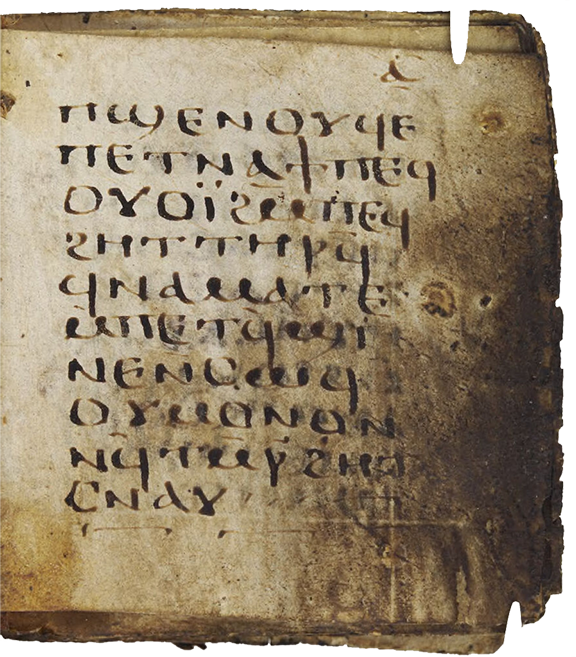 ⲁ̅
ⲡϣⲉⲛⲟⲩϥⲉ
ⲡⲉⲧⲛⲁϯⲡⲉϥ
ⲟⲩⲟⲓ̈ϩⲙ̅ⲡⲉϥ
ϩⲏⲧⲧⲏⲣϥ̅
ϥⲛⲁⲙⲁⲧⲉ
ⲙ̅ⲡⲉⲧϥ̅ϣⲓ
ⲛⲉⲛⲥⲱϥ
ⲟⲩⲙⲟⲛⲟⲛ
ⲛϥ̅ⲧⲙ̅ⲣ̅ϩⲏⲧ
ⲥⲛⲁⲩ